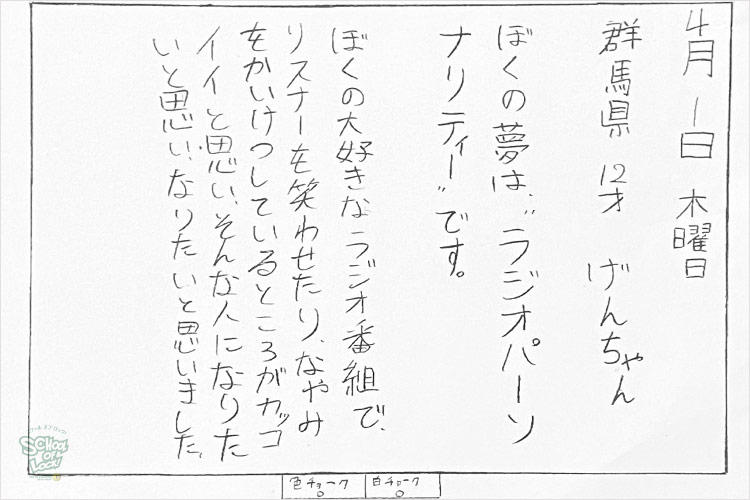 4月1日 木曜日
群馬県 12才 げんちゃん
ぼくの夢は、"ラジオパーソ
ナリティー"です。
ぼくの大好きなラジオ番組で、
リスナーを笑わせたり、なやみ
をかいけつしているところがカッコ
イイと思い、そんな人になりた
いと思い、なりたいと思いました。
色チョーク
白チョーク
SCHOOL
OF
LOCK!